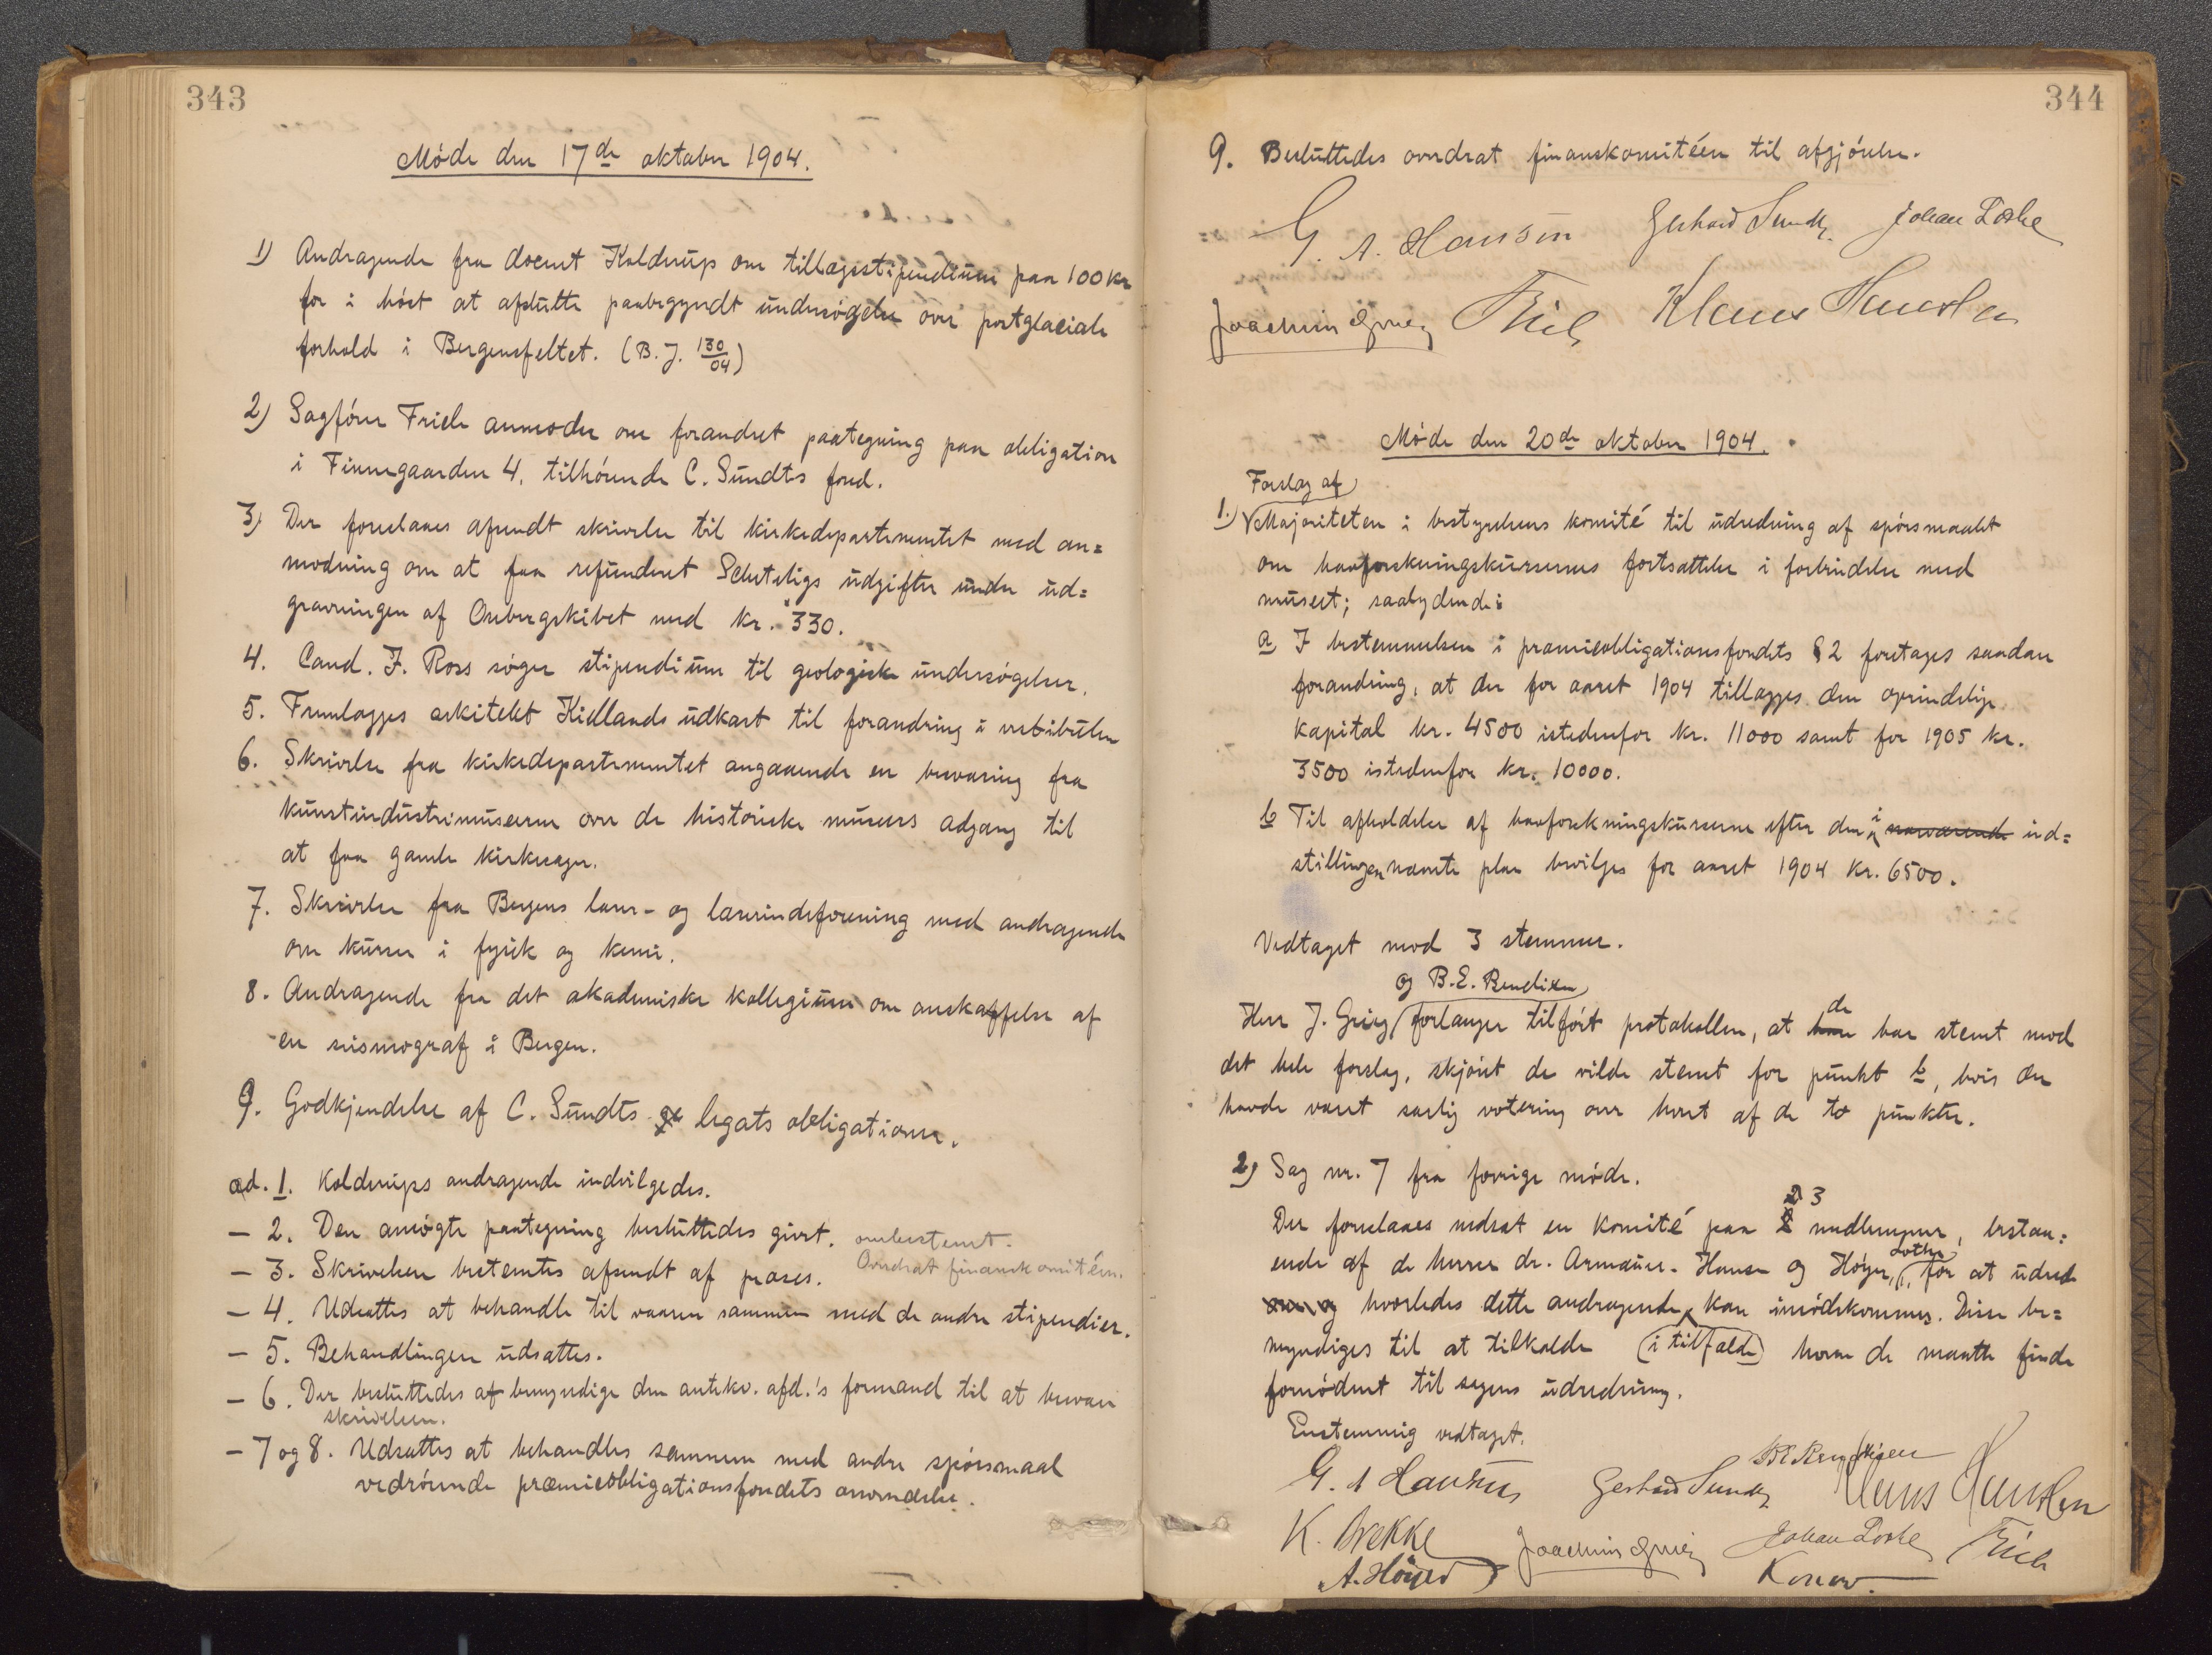 343
Møde den 17de oktober 1904.
1) Andragende fra docent Kolderup om tillægsstipendium paa 100 kr
for i høst at afslutte paabegyndt undersøgelse over postglaciale
forhold i Bergensfeltet. (B. J. 130/04)
2) Sagfører Friele anmoder om forandret paategning paa obligation
i Finnegaarden 4, tilhørende C. Sundts fond.
3) Der foreslaaes afsendt skrivelse til kirkedepartementet med an=
modning om at faa refunderet Scheteligs udgifter under ud=
gravningen af Osebergskibet med kr. 330.
4. Cand. J. Ross søger stipendium til geologiske undersøgelser.
5. Fremlægges arkitekt Kiellands udkast til forandring i vestibulen
6. Skrivelse fra kirkedepartementet angaaende en besvaring fra
kunstindustrimuseerne over de historiske museers adgang til
at faa gamle kirkesager.
7. Skrivelse fra Bergens lærer- og lærerindeforening med andragende
om kurser i fysik og kemi.
8. Andragende fra det akademiske kollegium om anskaffelse af
en seismograf i Bergen.
9. Godkjendelse af C. Sundts legats obligationer.
ad. 1. Kolderups andragende indvilgedes.
— 2. Den ansøgte paategning besluttedes givet. ombestemt.
Overdrat finanskomitéen.
— 3. Skrivelsen bestemtes afsendt af præses.
— 4. Udsattes at behandle til vaaren sammen med de andre stipendier.
— 5. Behandlingen udsattes.
— 6. Der besluttedes at bemyndige den antikv. afd.'s formand til at besvare
skrivelsen.
— 7 og 8. Udsattes at behandles sammen med andre spørsmaal
vedrørende præmieobligationsfondets anvendelse.
344
9. Besluttedes overdrat finanskomitéen til afgjørelse.
G. A. Hansen Gerhard Sundt Johan Lothe
Joachim Grieg Friele Klaus Hanssen
Møde den 20de oktober 1904.
Forslag af
1.) Majoriteten i bestyrelsens komité til udredning af spørsmaalet
om havforskningskursernes fortsættelse i forbindelse med
museet; saalydende:
a I bestemmelsen i præmieobligationsfondets § 2 foretages saadan
forandring, at der for aaret 1904 tillægges den oprindelige
kapital kr. 4500 istedenfor kr. 11000 samt for 1905 kr.
3500 istedenfor kr. 10000.
b Til afholdelse af havforskningskurserne efter den i nærværende ud=
stillingen nævnte plan bevilges for aaret 1904 kr. 6500.
Vedtaget mod 3 stemmer.
og B. E. Bendixen
Herr J. Grieg forlanger tilført protokollen, at han de har stemt mod
det hele forslag, skjønt de vilde stemt for punkt b, hvis der
havde været særlig votering over hvert af de to punkter.
2) Sag nr. 7 fra forrige møde.
Der foreslaaes nedsat en komité paa 3 medlemmer, bestaa=
ende af de herrer dr. Armauer-Hansen og Høyer, Lothe, for at udrede
om og hvorledes dette andragende kan imødekommes. Disse be=
myndiges til at tilkalde (i tilfælde) hvem de maatte finde
fornødent til sagens udredning.
Enstemmig vedtaget.
G. A Hansen Gerhard Sundt B E Bendixen Klaus Hanssen
K. Brekke Joachim Grieg Johan Lothe Friele
A. Höyer Konow.